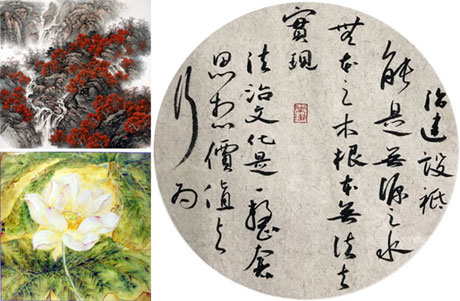 治建設祗
能是无源之水
無本之木根本无法去
實現
法治文化是一整套
思想價值与
行为